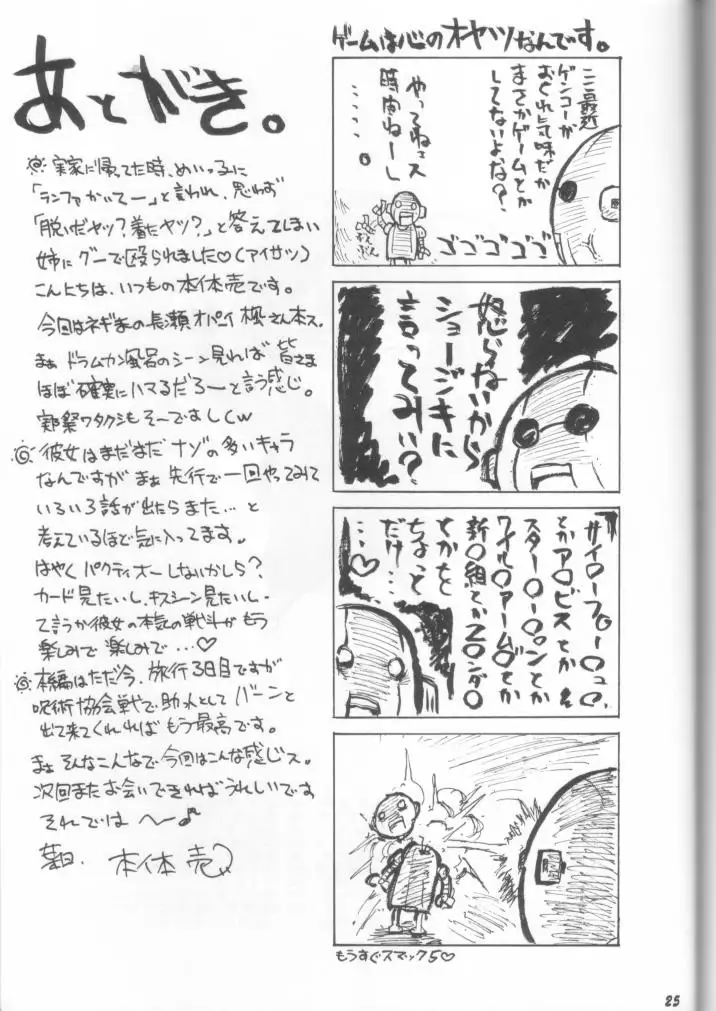 あとがき。
実家に帰ってた時、めいっ子に
「ランファかいてー」と言われ、思わず
「脱いだヤツ?着たヤツ?」と答えてしまい
姉にグーで殴られました♡(アイサツ)
こんにちは、いつもの本体売です。
今回はネギまの長瀬オパイ楓さん本ス。
まぁドラムカン風呂のシーン見れば皆さま
ほぼ確実にハマるだろーと言う感じ。
実際ワタクシもそーですしw
彼女はまだまだナゾの多いキャラ
なんですがまぁ先行で一回やってみて
いろいろ話が出たらまた…と
考えているほど気に入ってます。
はやくパクティオーしないかしら?
カード見たいし、キスシーン見たいし
て言うか彼女の本気の戦斗がもう
楽しみで楽しみで…♡
本編はただ今、旅行3日目ですが
呪術協会戦で助っ人としてバーンと
出て来てくれればもう最高です。
まぁそんなこんなで今回はこんな感じス。
次回またお会いできればうれしいです
それでは〜♪
本体売
ゲームは心のオヤツなんです。
ここ最近
ゲンコーが
おくれ気味だが
まさかゲームとか
してないよな?
やってねェス
時間ねーし
……。
ゴゴゴゴゴ
怒らないから
ショージキに
言ってみい?
サイ○ーフ○ー○ュ○、
とかア○ビスとか
スター○ー○ンとか
ワイル○アームズとか
新○組とかZ○ンダ○
とかをと
ちょっと
だけ…
…♡
もうすぐスマック5♡
25